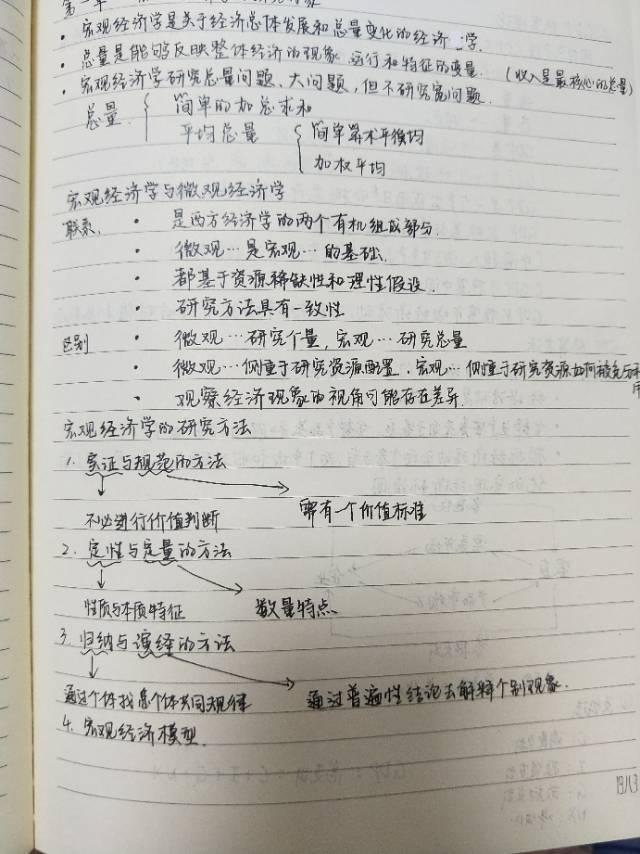 第一章
· 宏观经济学是关于经济总体发展和总量变化的经济学.
· 总量是能够反映整体经济的现象.运行和特征的变量. (收入是最核心的总量)
· 宏观经济学研究总量问题、大问题，但不研究宽问题.
总量 { 简单的加总求和
平均总量 { 简单算术平衡均
加权平均
宏观经济学与微观经济学
联系, · 是西方经济学的两个有机组成部分.
· 微观…是宏观…的基础.
· 都基于资源稀缺性和理性假设.
· 研究方法具有一致性
区别 · 微观…研究个量，宏观…研究总量
· 微观…侧重于研究资源配置，宏观…侧重于研究资源如何被充分利用
· 观察经济现象的视角可能存在差异.
宏观经济学的研究方法
1. 实证与规范的方法
不必进行价值判断 需有一个价值标准
2. 定性与定量的方法
性质与本质特征 数量特点
3. 归纳与演绎的方法
通过个体找总个体共同规律 通过普遍性结论去解释个别现象.
4. 宏观经济模型.